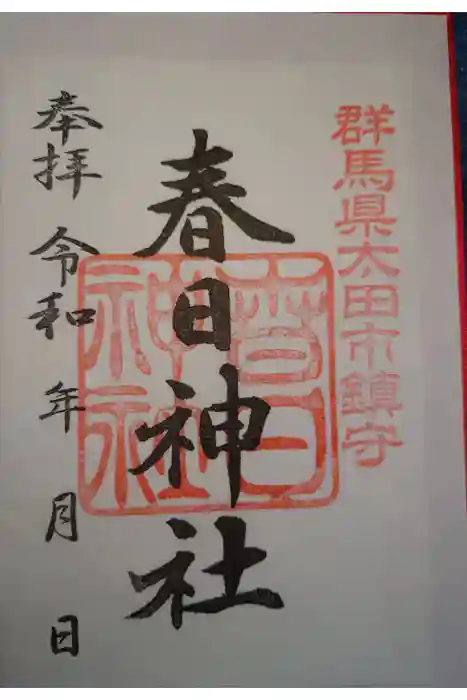 群馬県太田市鎮守
春日神社
春日
神社
奉拝 令和 年 月 日